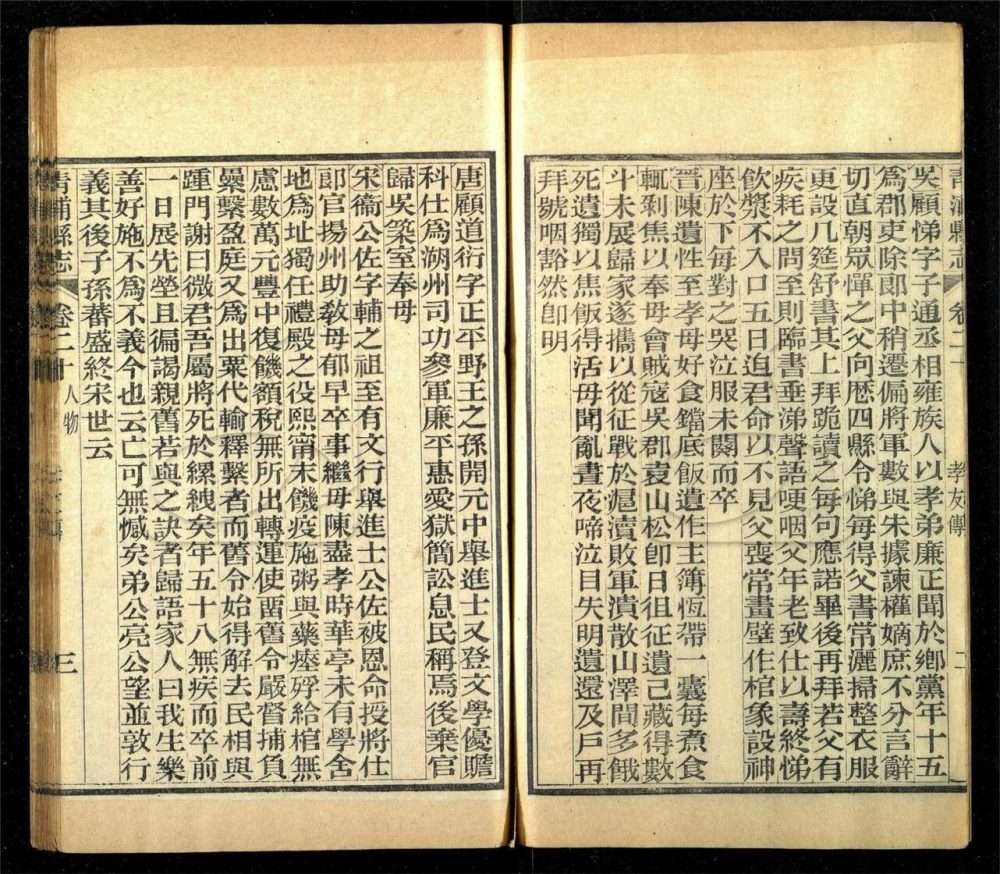 青浦縣志 卷二十 孝友傳 二
吳顧悌字子通丞相雍族人以孝弟廉正聞於鄉黨年十五
爲郡吏除郞中稍遷偏將軍數與朱據諫權嫡庶不分言辭
切直朝眾憚之父向歷四縣令悌每得父書常灑掃整衣服
更設几筵舒書其上拜跪讀之每句應諾畢後再拜若父有
疾耗之問至則臨書垂涕聲語哽咽父年老致仕以壽終悌
飮漿不入口五日迫君命以不見父喪常畫壁作棺象設神
座於下每對之哭泣服未闋而卒
晉陳遺性至孝母好食鐺底飯遺作主簿恆帶一囊每煮食
輒剩焦以奉母會賊寇吳郡袁山松卽日徂征遺己藏得數
斗未展歸家遂攜以從征戰於滬瀆敗軍潰散山澤間多餓
死遺獨以焦飯得活母聞亂晝夜啼泣目失明遺還及戶再
拜號咽豁然卽明
唐顧道衍字正平野王之孫開元中舉進士又登文學優贍
科仕爲湖州司功參軍廉平惠愛獄簡訟息民稱焉後棄官
歸吳築室奉母
宋衞公佐字輔之祖至有文行舉進士公佐被恩命授將仕
郞官揚州助敎母郁早卒事繼母陳盡孝時華亭未有學舍
地爲址獨任禮殿之役熙甯末饑疫施粥與藥瘞殍給棺無
慮數萬元豐中復饑額稅無所出轉運使畱舊令嚴督捕負
纍繫盈庭又爲出粟代輸釋繫者而舊令始得解去民相與
踵門謝曰微君吾屬將死於縲絏矣年五十八無疾而卒前
一日展先塋且徧謁親舊若與之訣者歸語家人曰我生樂
善好施不爲不義今也云亡可無憾矣弟公亮公望並敦行
義其後子孫蕃盛終宋世云
青浦縣志 卷二十 人物 三